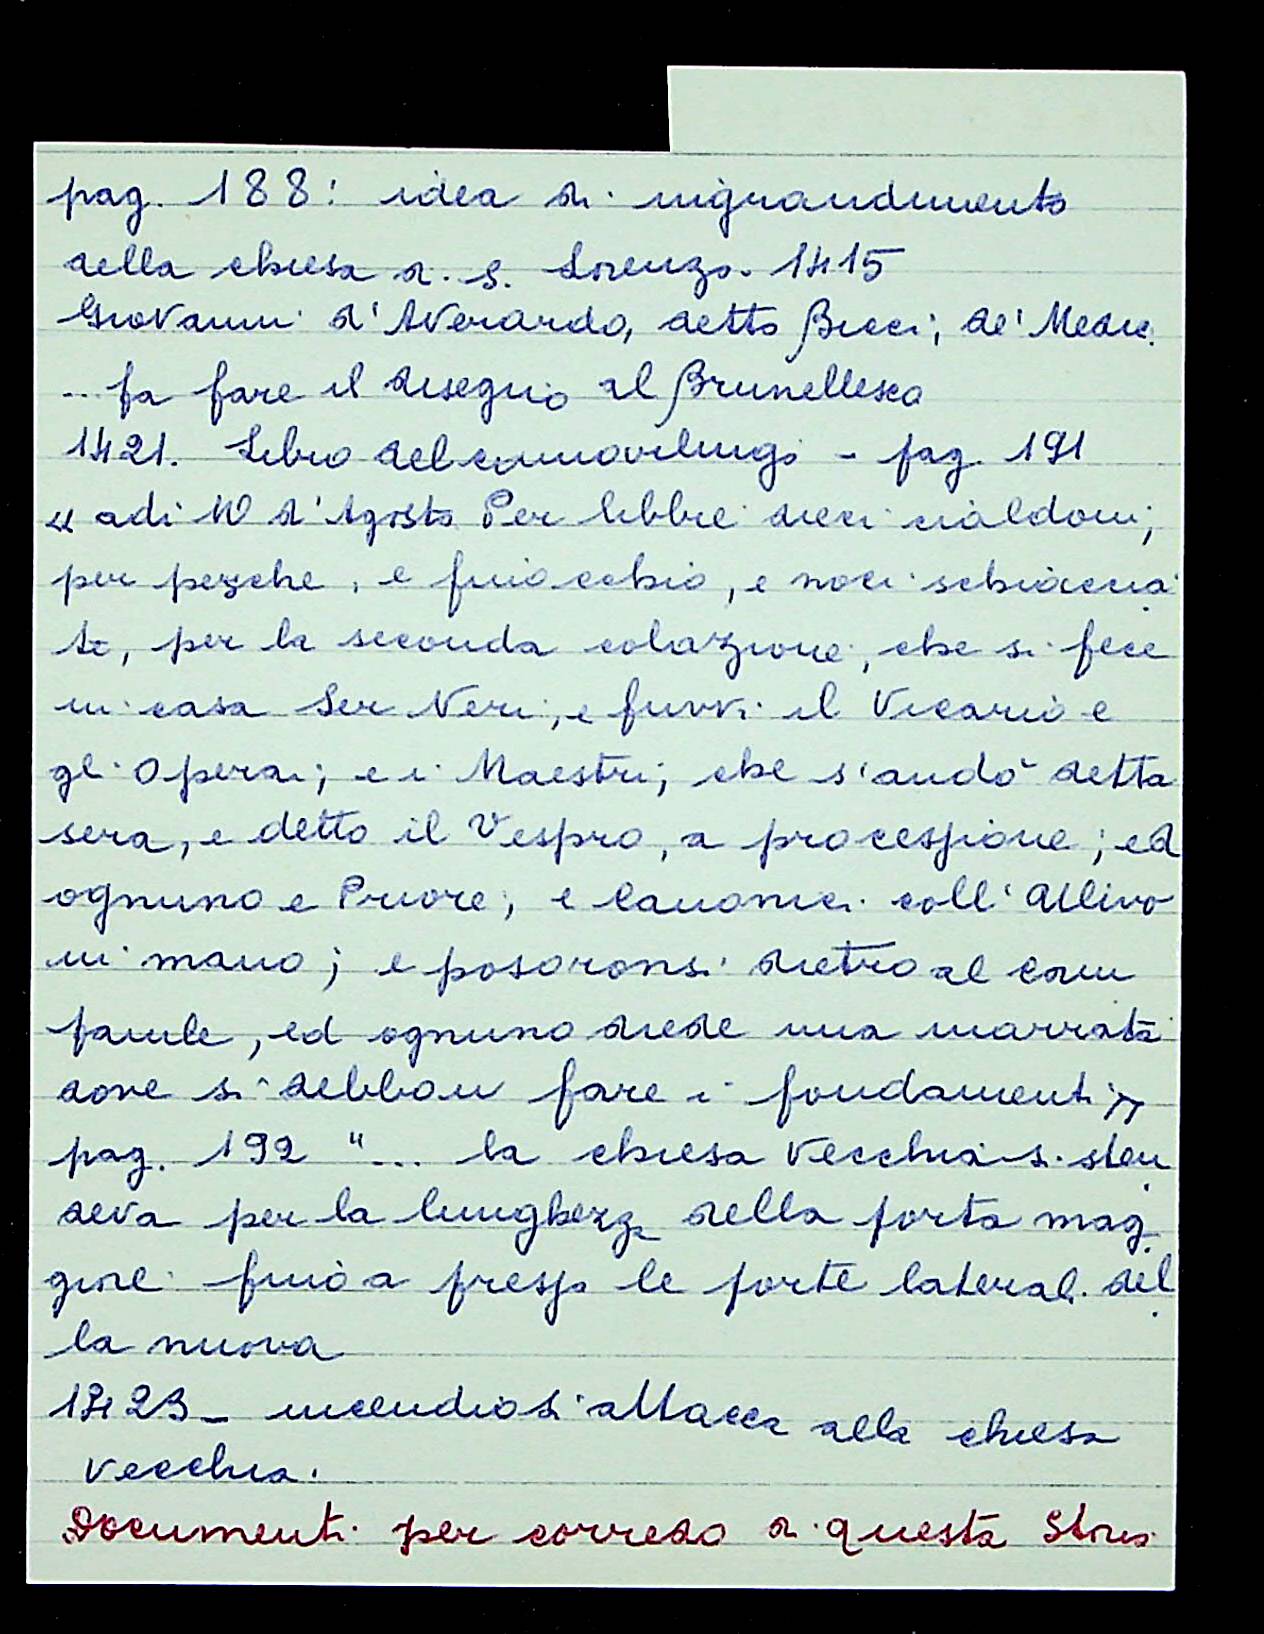 pag. 188: idea di ingrandimento
della chiesa di S. Lorenzo. 1415
Giovanni d'Averardo, detto Bicci, de' Medic.
... fa fare il disegno al Brunellesco
1421. Libro del camarlingo - pag. 191
« adi 10 d'Agosto Per libbre dieci cialdoni,
per pezche, e finocchio, e noci schiaccia
te, per la seconda colazione, che si fece
in casa Ser Neri, e funvi il Vicario e
gl. Operai, e i Maestri, che s'andò detta
sera, e detto il Vespro, a processione; ed
ognuno e Priore, e Canonici coll'
in mano; e posoronsi dietro al cam
panile, ed ognuno diede una marrata
dove si debbon fare i fondamenti »
pag. 192 "... la chiesa vecchia si sten
deva per la lunghezza della porta mag
giore fino a presso le porte laterali del
la nuova
1423 - incendio si attacca alla chiesa
vecchia.
Documenti per corredo di questa Storia